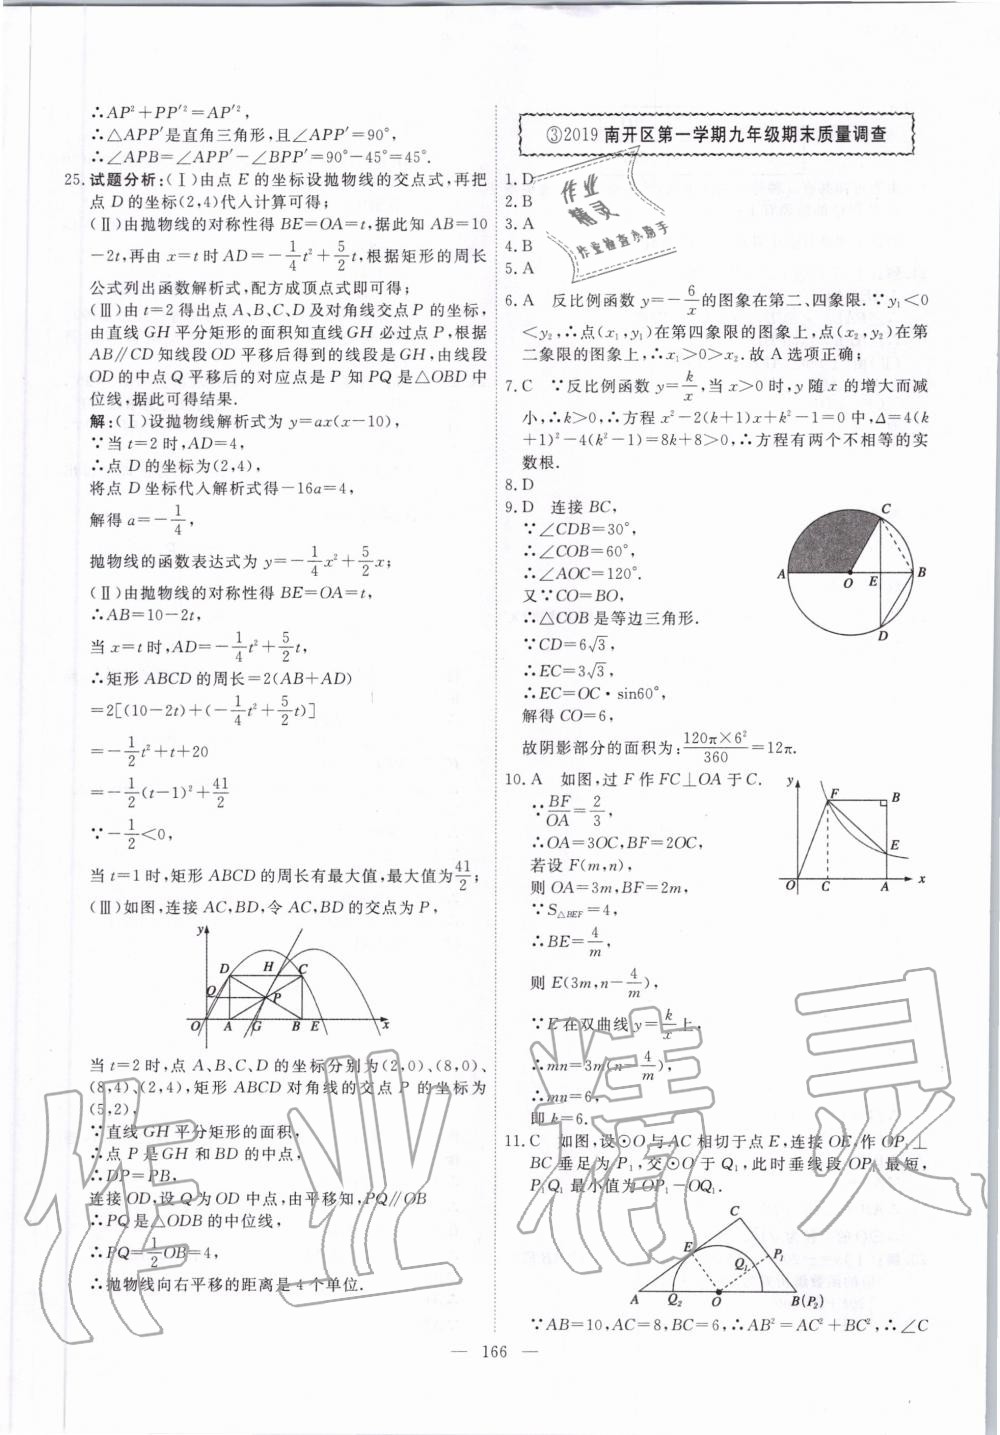 ∴AP²+PP′²=AP′²,
∴△APP′是直角三角形,且∠APP′=90°,
∴∠APB=∠APP′-∠BPP′=90°-45°=45°.
25.试题分析:(Ⅰ)由点 E 的坐标设抛物线的交点式,再把
点 D 的坐标(2,4)代入计算可得;
(Ⅱ)由抛物线的对称性得 BE=OA=t,据此知 AB=10
-2t,再由 x=t 时 AD=-1/4t²+5/2t,根据矩形的周长
公式列出函数解析式,配方成顶点式即可得;
(Ⅲ)由 t=2 得出点 A、B、C、D 及对角线交点 P 的坐标,
由直线 GH 平分矩形的面积知直线 GH 必过点 P,根据
AB∥CD 知线段 OD 平移后得到的线段是 GH,由线段
OD 的中点 Q 平移后的对应点是 P 知 PQ 是△OBD 中
位线,据此可得结果.
解:(Ⅰ)设抛物线解析式为 y=ax(x-10),
∵当 t=2 时,AD=4,
∴点 D 的坐标为(2,4),
将点 D 坐标代入解析式得-16a=4,
解得 a=-1/4,
抛物线的函数表达式为 y=-1/4x²+5/2x;
(Ⅱ)由抛物线的对称性得 BE=OA=t,
∴AB=10-2t,
当 x=t 时,AD=-1/4t²+5/2t,
∴矩形 ABCD 的周长=2(AB+AD)
=2[(10-2t)+(-1/4t²+5/2t)]
=-1/2t²+t+20
=-1/2(t-1)²+41/2
∵-1/2<0,
当 t=1 时,矩形 ABCD 的周长有最大值,最大值为41/2;
(Ⅲ)如图,连接 AC,BD,令 AC,BD 的交点为 P,
y
D H C
Q P
O A G B E x
当 t=2 时,点 A、B、C、D 的坐标分别为(2,0)、(8,0)、
(8,4)、(2,4),矩形 ABCD 对角线的交点 P 的坐标为
(5,2),
∵直线 GH 平分矩形的面积,
∴点 P 是 GH 和 BD 的中点,
∴DP=PB,
连接 OD,设 Q 为 OD 中点,由平移知,PQ∥OB
∴PQ 是△ODB 的中位线,
∴PQ=1/2OB=4,
∴抛物线向右平移的距离是 4 个单位.
③2019 南开区第一学期九年级期末质量调查
1.D
2.B
3.A
4.B
5.A
6.A 反比例函数 y=-6/x的图象在第二、四象限.∵y₁<0
<y₂,∴点(x₁,y₁)在第四象限的图象上,点(x₂,y₂)在第
二象限的图象上,∴x₁>0>x₂.故 A 选项正确;
7.C ∵反比例函数 y=k/x,当 x>0 时,y 随 x 的增大而减
小,∴k>0,∴方程 x²-2(k+1)x+k²-1=0 中,Δ=4(k
+1)²-4(k²-1)=8k+8>0,∴方程有两个不相等的实
数根.
8.D
9.D 连接 BC,
∵∠CDB=30°,
∴∠COB=60°,
∴∠AOC=120°.
又∵CO=BO,
∴△COB 是等边三角形.
∵CD=6√3,
∴EC=3√3,
∴EC=OC·sin60°,
解得 CO=6,
故阴影部分的面积为:120π×6²/360=12π.
C
A O E B
D
10.A 如图,过 F 作 FC⊥OA 于 C.
∵BF/OA=2/3,
∴OA=3OC,BF=2OC,
若设 F(m,n),
则 OA=3m,BF=2m,
∵S△BEF=4,
∴BE=4/m,
则 E(3m,n-4/m),
∵E 在双曲线 y=k/x上,
∴mn=3m(n-4/m),
∴mn=6,
即 k=6.
y
F B
E
O C A x
11.C 如图,设⊙O 与 AC 相切于点 E,连接 OE,作 OP₁⊥
BC 垂足为 P₁,交⊙O 于 Q₁,此时垂线段 OP₁ 最短,
P₁Q₁ 最小值为 OP₁-OQ₁.
C
E Q₁ P₁
A Q₂ O B(P₂)
∵AB=10,AC=8,BC=6,∴AB²=AC²+BC²,∴∠C
— 166 —
作业
精灵
作业检查小助手
作业精灵